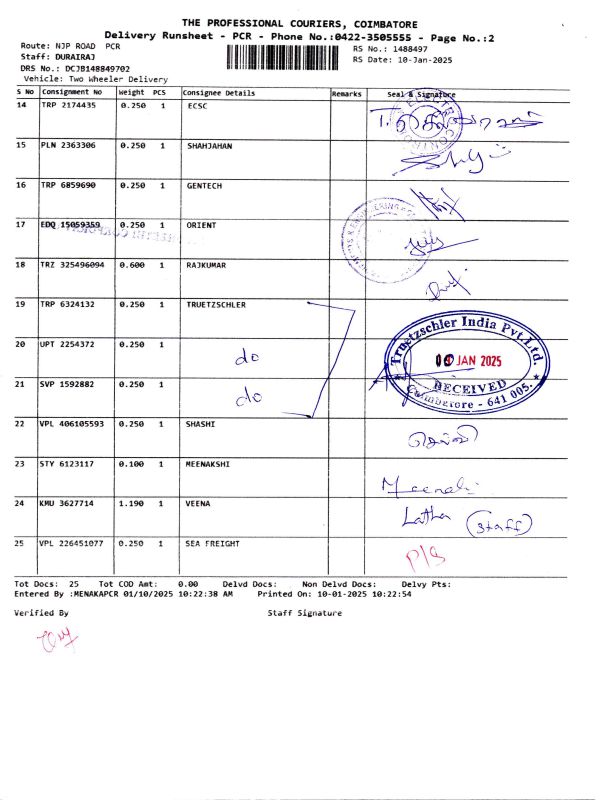 THE PROFESSIONAL COURIERS, COIMBATORE
Delivery Runsheet - PCR - Phone No.:0422-3505555 - Page No.:2
Route: NJP ROAD PCR
RS No.: 1488497
Staff: DURAIRAJ
RS Date: 10-Jan-2025
DRS No.: DCJB148849702
Vehicle: Two Wheeler Delivery
S No Consignment No Weight PCS Consignee Details Remarks Seal & Signature
14 TRP 2174435 0.250 1 ECSC
15 PLN 2363306 0.250 1 SHAHJAHAN
16 TRP 6859690 0.250 1 GENTECH
17 EDQ 15059359 0.250 1 ORIENT
18 TRZ 325496094 0.600 1 RAJKUMAR
19 TRP 6324132 0.250 1 TRUETZSCHLER
20 UPT 2254372 0.250 1 do
21 SVP 1592882 0.250 1 do
Truetzschler India Pvt.Ltd.
JAN 2025
RECEIVED
Coimbatore - 641 005.
22 VPL 406105593 0.250 1 SHASHI
23 STY 6123117 0.100 1 MEENAKSHI Meenakshi
24 KMU 3627714 1.190 1 VEENA Latha (Staff)
25 VPL 226451077 0.250 1 SEA FREIGHT P/S
Tot Docs: 25 Tot COD Amt: 0.00 Delvd Docs: Non Delvd Docs: Delvy Pts:
Entered By :MENAKAPCR 01/10/2025 10:22:38 AM Printed On: 10-01-2025 10:22:54
Verified By Staff Signature